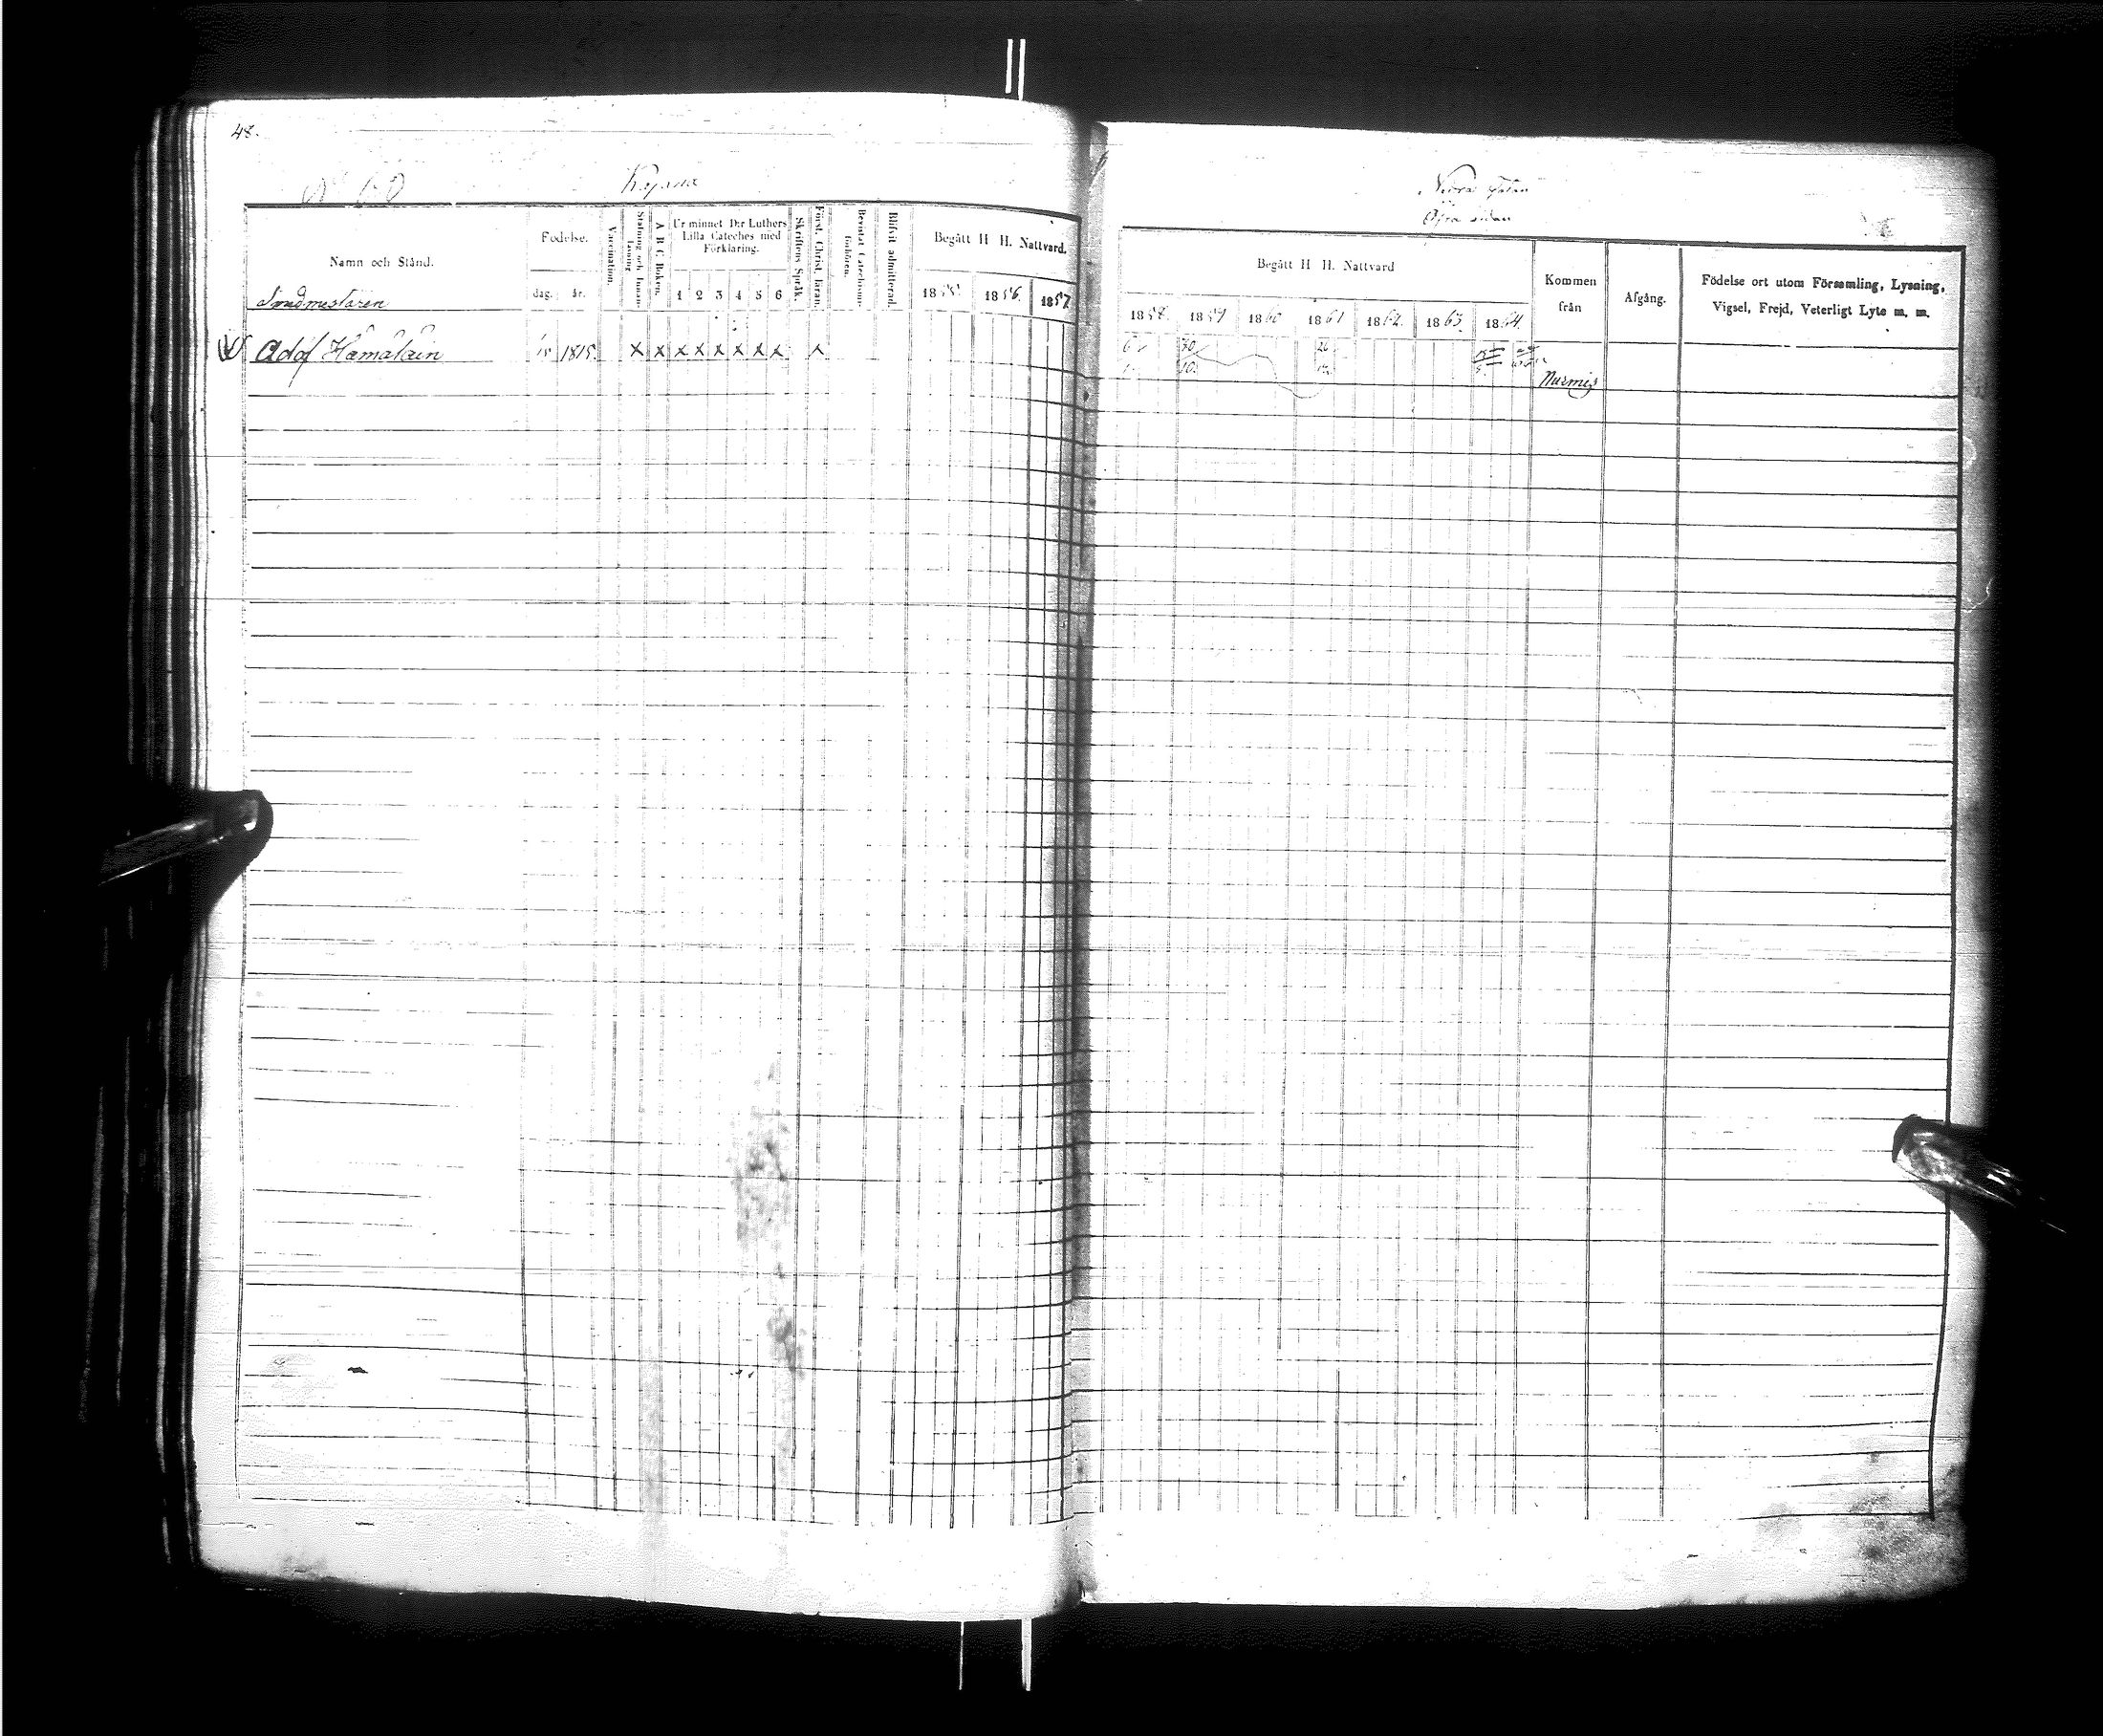 48.
N:o 60
Kajana
Namn och Stånd.
Födelse.
dag.
år.
Vaccination.
Stafning och Innanläsning
A B C Boken.
Ur minnet D:r Luthers
Lilla Cateches med
Förklaring.
1 2 3 4 5 6
Skriftens Språk.
Först. Christ. läran.
Bevistat Catechismi-
förhören.
Blifvit admitterad.
Begått H H. Nattvard.
1855. 1856. 1857
Smedmestaren
Adolf Hämäläin 1815. X X X X X X X X X
Nedra Gatan
Öfra sidan
Begått H H. Nattvard
1858. 1859 1860 1861 1862. 1863. 1864.
Kommen
från
Afgång.
Födelse ort utom Församling, Lysning,
Vigsel, Frejd, Veterligt Lyte m. m.
Nurmis